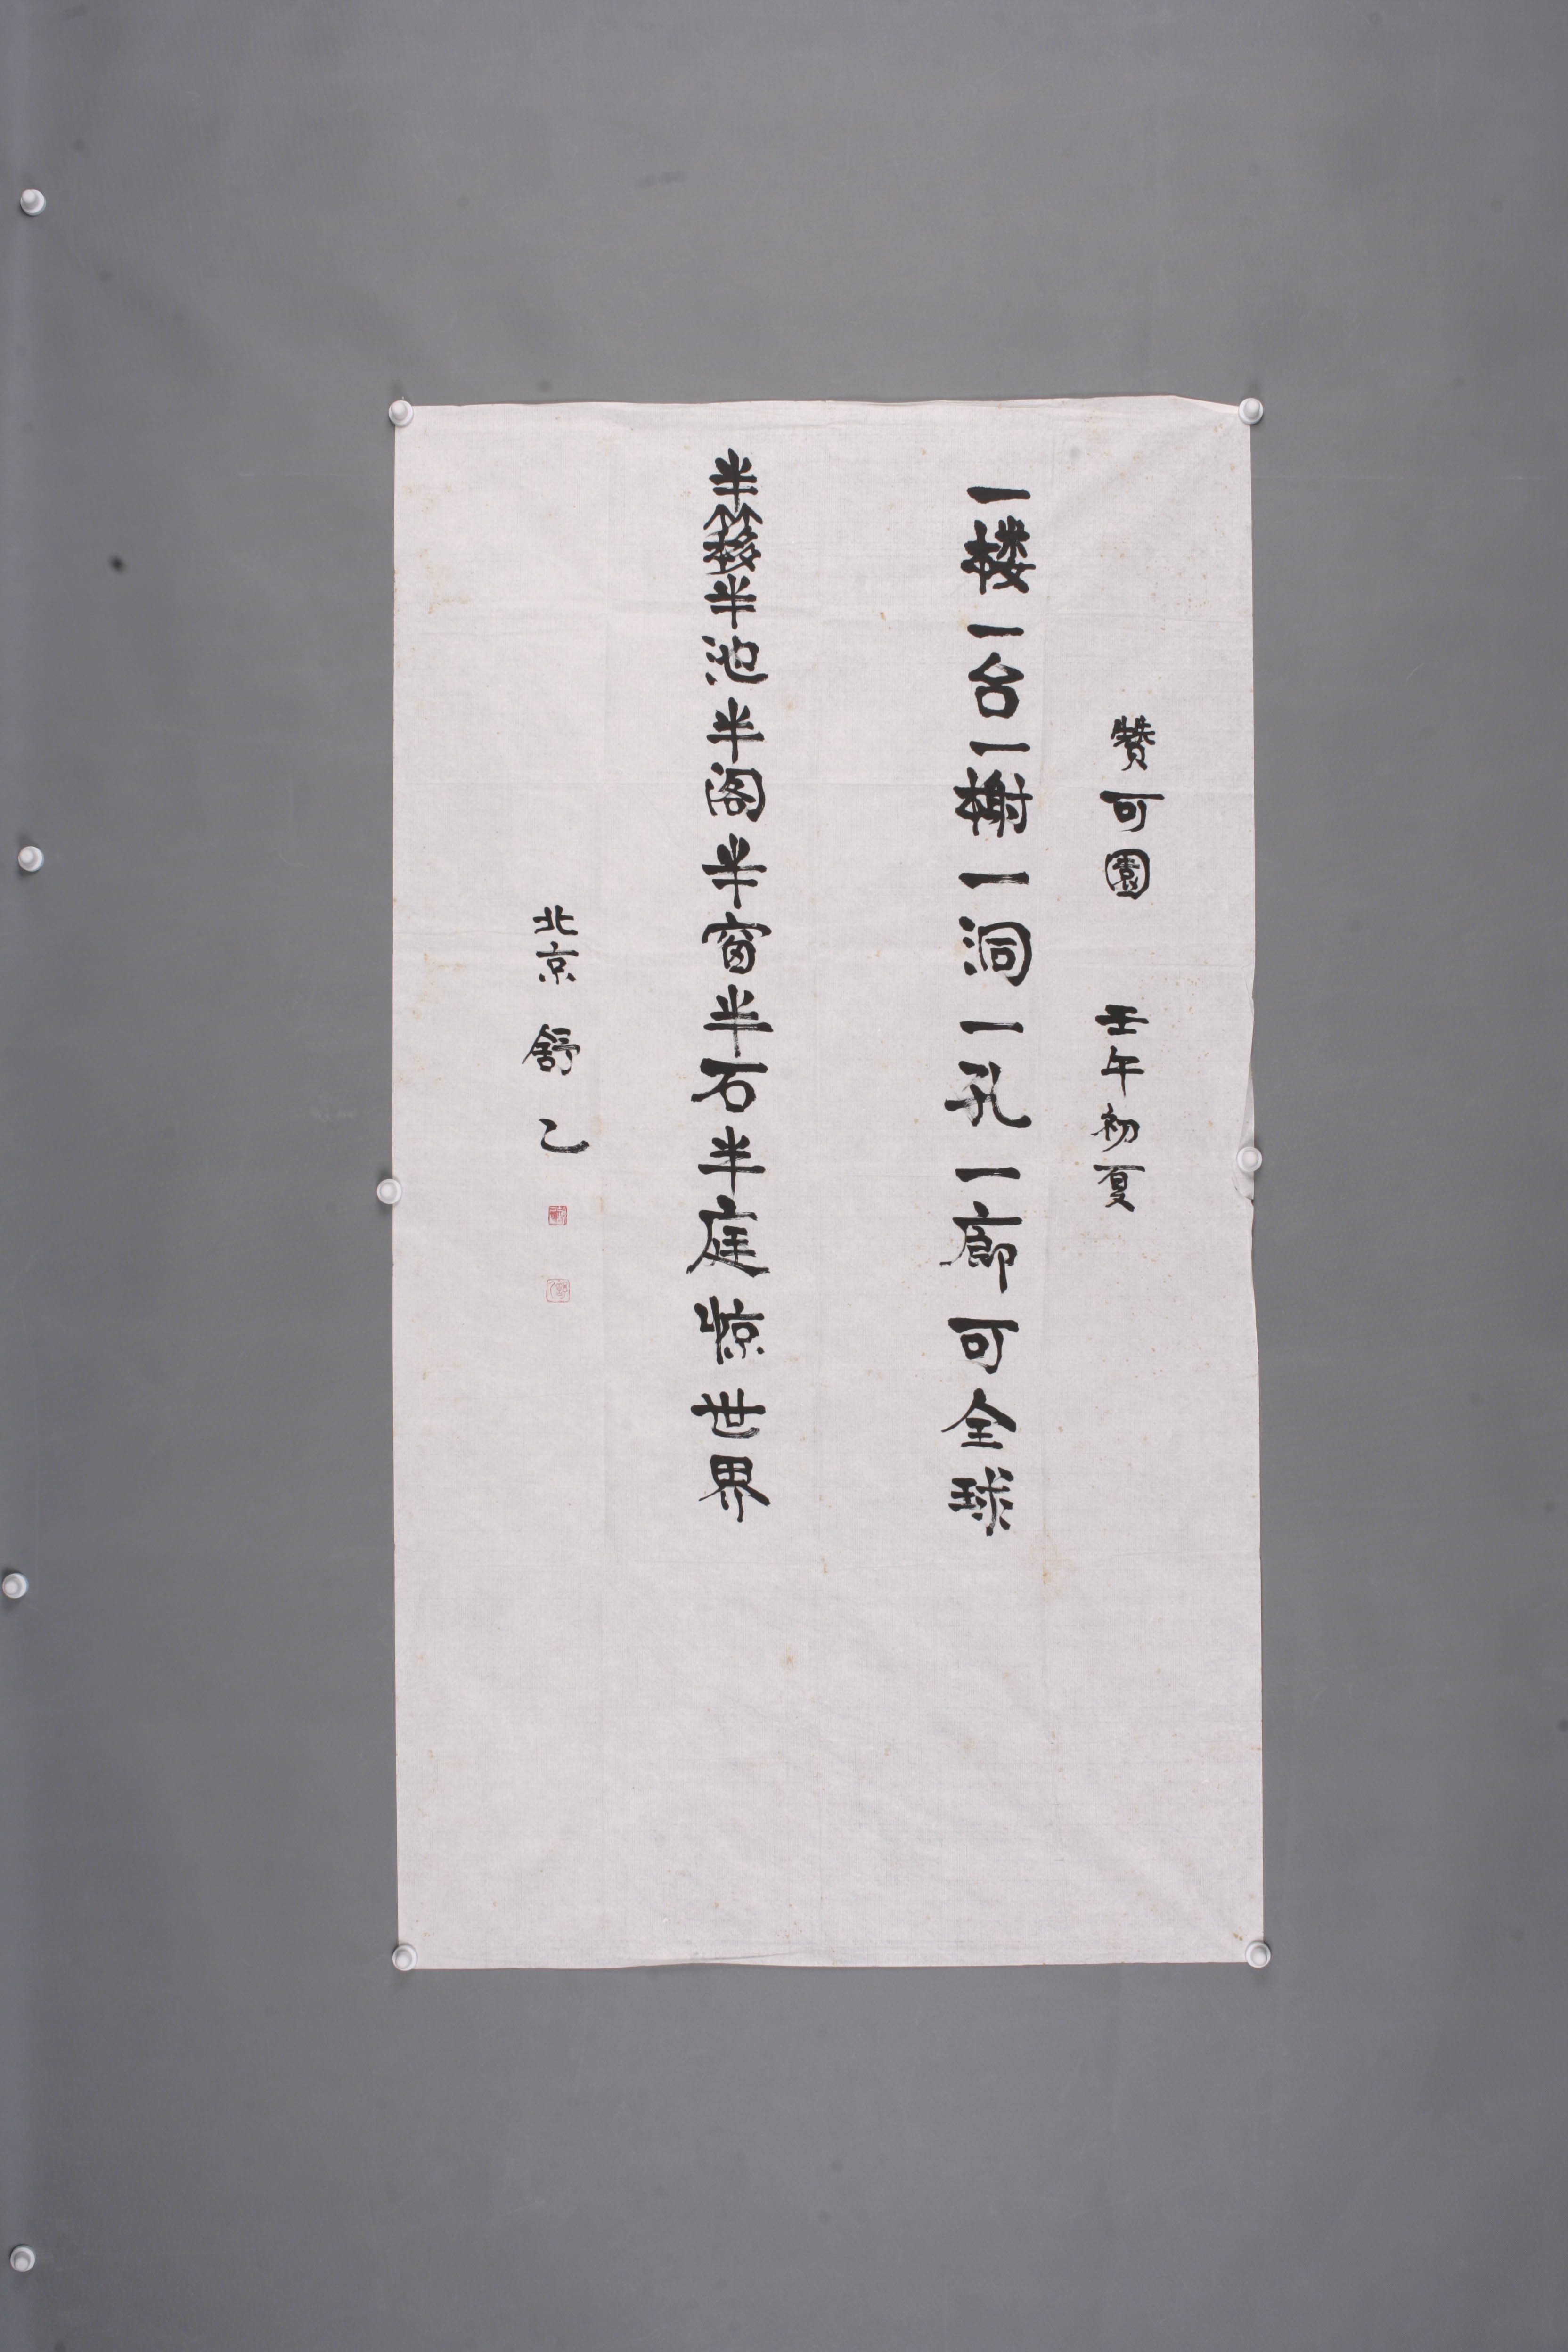 赞可園 壬午初夏
一楼一台一榭一洞一孔一廊可全球
半簃半池半阁半窗半石半庭惊世界
北京 舒乙